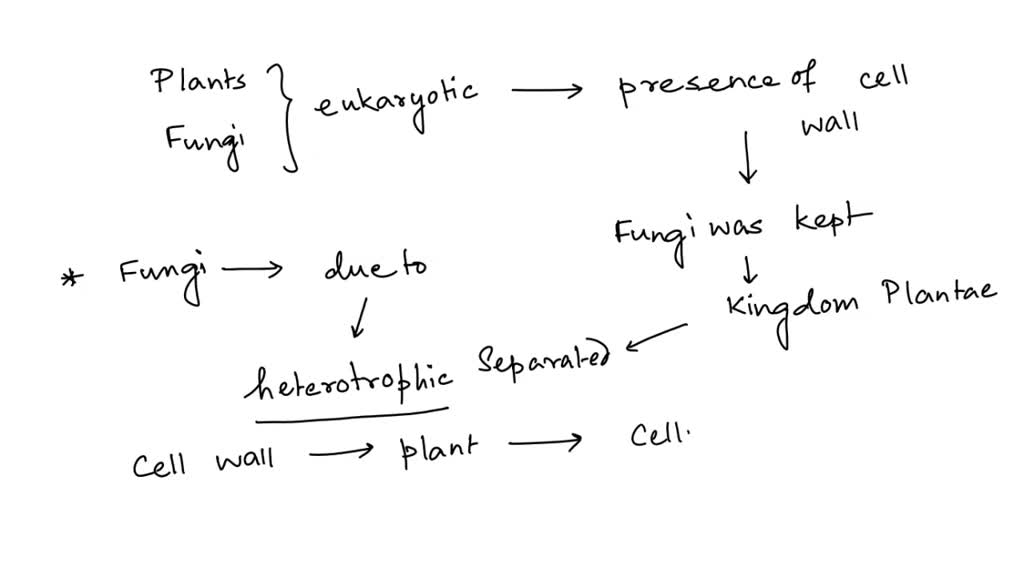 Plants
Fungi } eukaryotic → presence of cell
wall
↓
Fungi was kept
↓
Kingdom Plantae
* Fungi → due to
↓
heterotrophic Separated ←
Cell wall → plant → Cell.